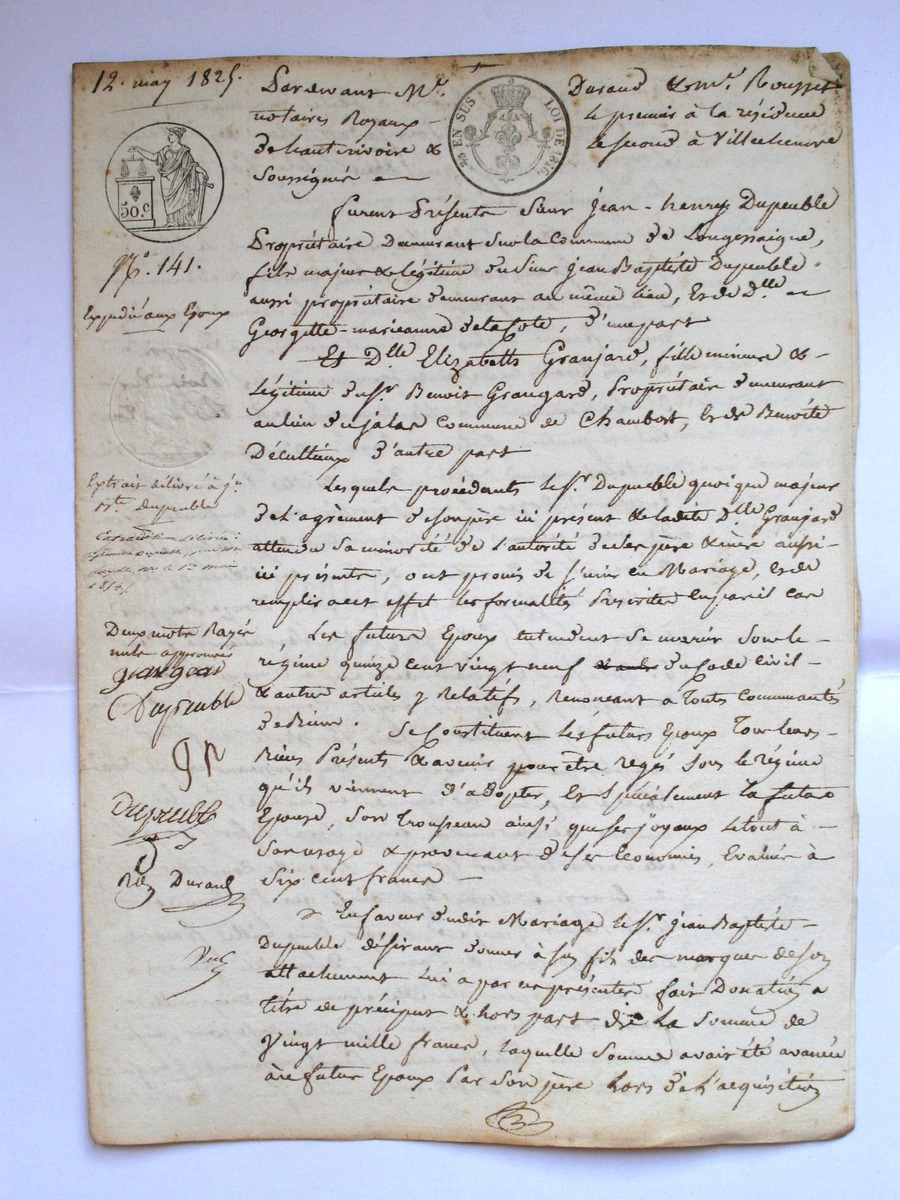 12. may 1825.
Pardevant Me. Durand & me. Rousset
notaires Royaux - le premier à la résidence
de hauterivoire & le second à Villechenève
Soussignés -
EN SUS LOI DE 1816.
50.c
furent Présents Sieur Jean-henry Dupeuble
Propriétaire Demeurant Sur la Commune de Longessaigne,
fils majeur & légitime du Sieur Jean Baptiste Dupeuble
aussi propriétaire demeurant au même lieu, Et de dlle -
Georgette-marieanne delacote, d'une part
Et Dlle Elizabeth Granjard, fille mineure &
Légitime du Sr. Benoit Grangard, Propriétaire demeurant
au lieu du jalas Commune de Chambost, Et de Benoite
Décultieux d'autre part
Lesquels procédants le Sr. Dupeuble quoique majeur
de L'agrément de son père ici présent & ladite Dlle Granjard
attendu Sa minorité de L'autorité de ses père & mère aussi
ici présents, ont promis de S'unir en Mariage, et de
remplir à cet effet les formalités Prescrites En pareil cas
Les futurs Epoux entendent Se marier Sous le -
régime quinze cent vingt neuf du Code Civil -
& autres articles y Relatifs, Renonçant à Toutes Communautés
de Biens. Se Constituent Les futurs Epoux Tous leurs -
Biens Présents & avenir pour être régis Sous le Régime
qu'ils viennent d'adopter, Et Spécialement la future
Epouse, Son Trousseau ainsi que ses joyaux le tout à -
Son usage & provenant de ses Economies, Evalués à
Six cent francs -
En faveur dudit Mariage le Sr. Jean Baptiste
Dupeuble désirant donner à Son fils des marques de Son
attachement Lui a par ces présentes fait Donation à
titre de préciput & hors part de La Somme de
Vingt mille francs, Laquelle Somme avait été avancée
au futur Epoux Par Son père hors de L'acquisition
No. 141.
Expédié aux Epoux
Extrait délivré à jn
Bte dupeuble
Deux mots Rayés
nuls approuvés
granjard
Dupeuble
Dupeuble
Durand